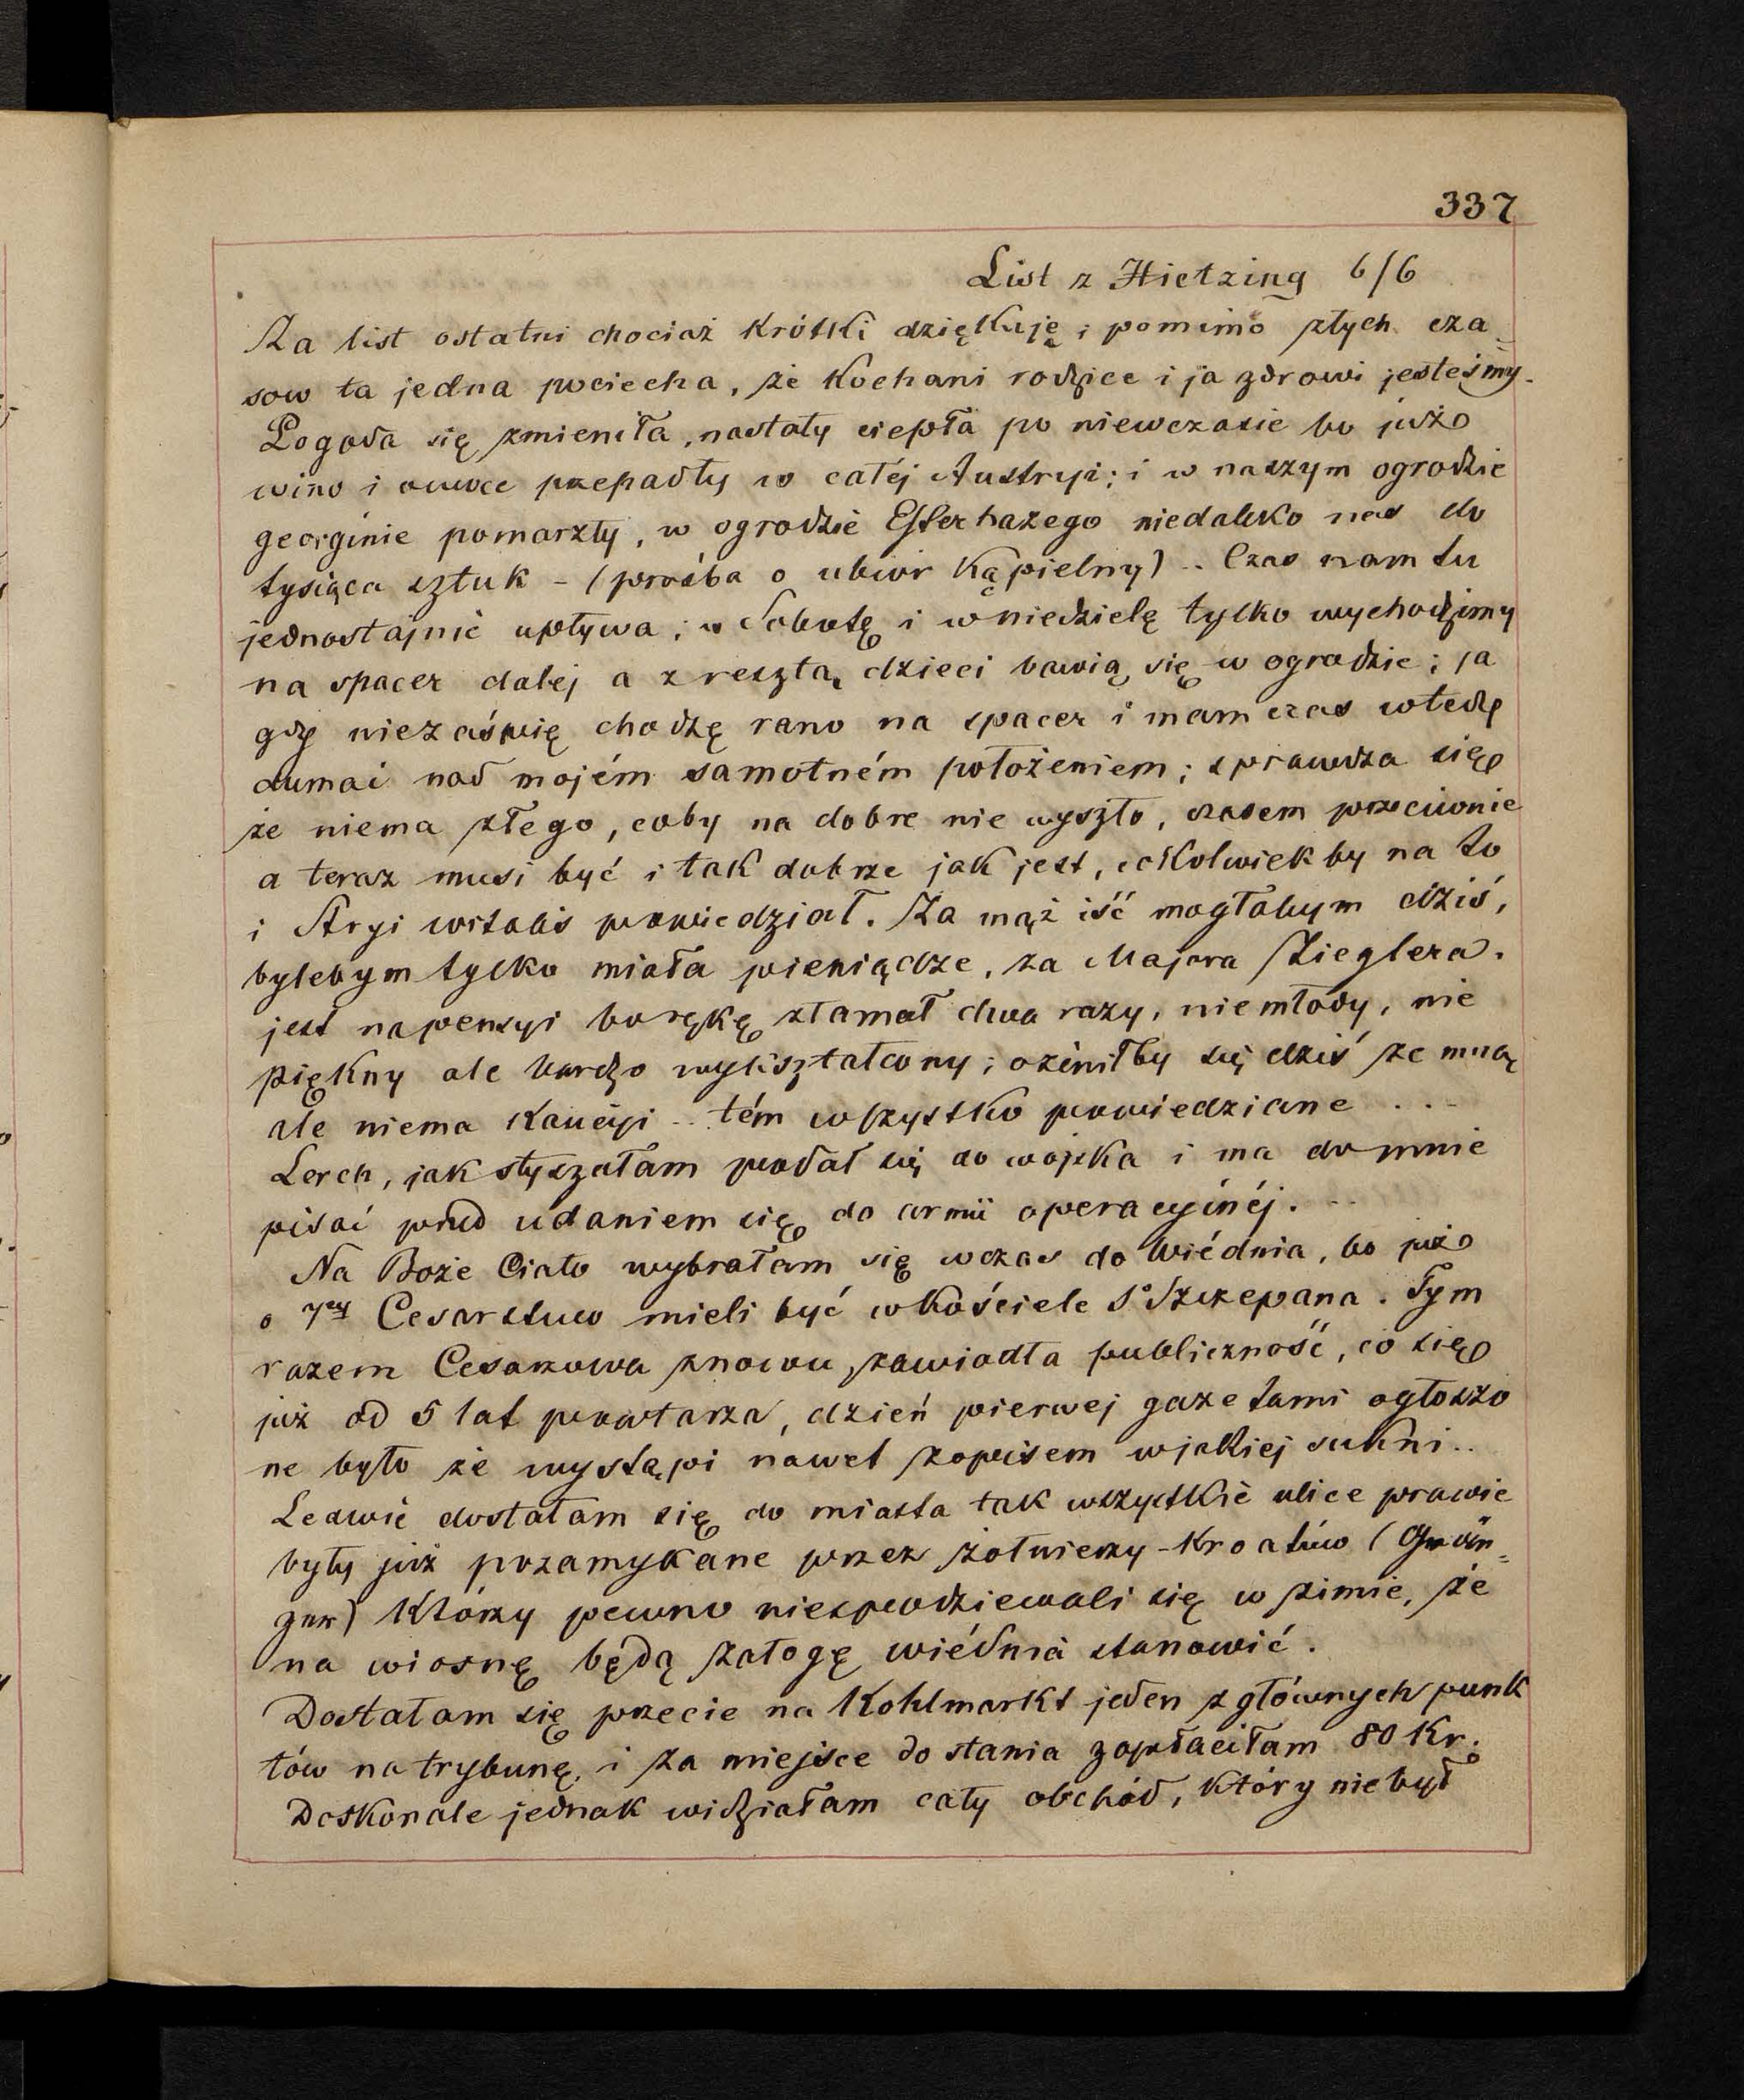 337
List z Hietzing 6/6
Za list ostatni chociaż krótki dziękuję; pomimo złych cza=
sow ta jedna pociecha, że kochani rodzice i ja zdrowi jesteśmy.
Pogoda się zmieniła, nastały ciepła po niewczasie bo już
wino i owoce przepadły w całéj Austryi; i w naszym ogrodzie
georginie pomarzły, w ogrodzie Esterhazego niedaleko nas do
tysiąca sztuk - (prośba o ubiór kąpielny) .. Czas nam tu
jednostajnie upływa; w Sobotę i w niedzielę tylko wychodzimy
na spacer dalej a z resztą dzieci bawią się w ogrodzie; ja
gdy niezaśpię chodzę rano na spacer i mam czas wtedy
dumać nad mojém samotném położeniem; sprawdza się
że niema złego, coby na dobre nie wyszło, czasem przeciwnie
a teraz musi być i tak dobrze jak jest, cokolwiek by na to
i Stryj powiedział. Za mąż iść mogłabym dziś,
bylebym tylko miała pieniądze, za Majora Zieglera.
jest na pensyi bo rękę złamał dwa razy, niemłody, nie
piękny ale bardzo wykształcony; ożeniłby się dziś ze mną
ale niema kaucyi .. tém wszystko powiedziane ...
Lerch, jak słyszałam podał się do wojska i ma do mnie
pisać przed udaniem się do armii operacyjnéj. ..
Na Boże Ciało wybrałam się wczas do Wiédnia, bo już
o 7ej Cesarstwo mieli być w kościele Sº Szczepana. Tym
razem Cesarzowa znowu zawiodła publiczność, co się
już od 5 lat powtarza, dzień pierwej gazetami ogłoszo
ne było że wystąpi nawet z opisem w jakiej sukni..
Ledwie dostałam się do miasta tak wszystkie ulice prawie
były już pozamykane przez żołnierzy - Kroatów (Grän=
zer) którzy pewno niespodziewali się w zimie, że
na wiosnę będą załogę wiédnia stanowić.
Dostałam się przecie na Kohlmarkt jeden z głównych punk
tów na trybunę, i za miejsce do stania zapłaciłam 80 Kr.
Doskonale jednak widziałam cały obchód, który niebył